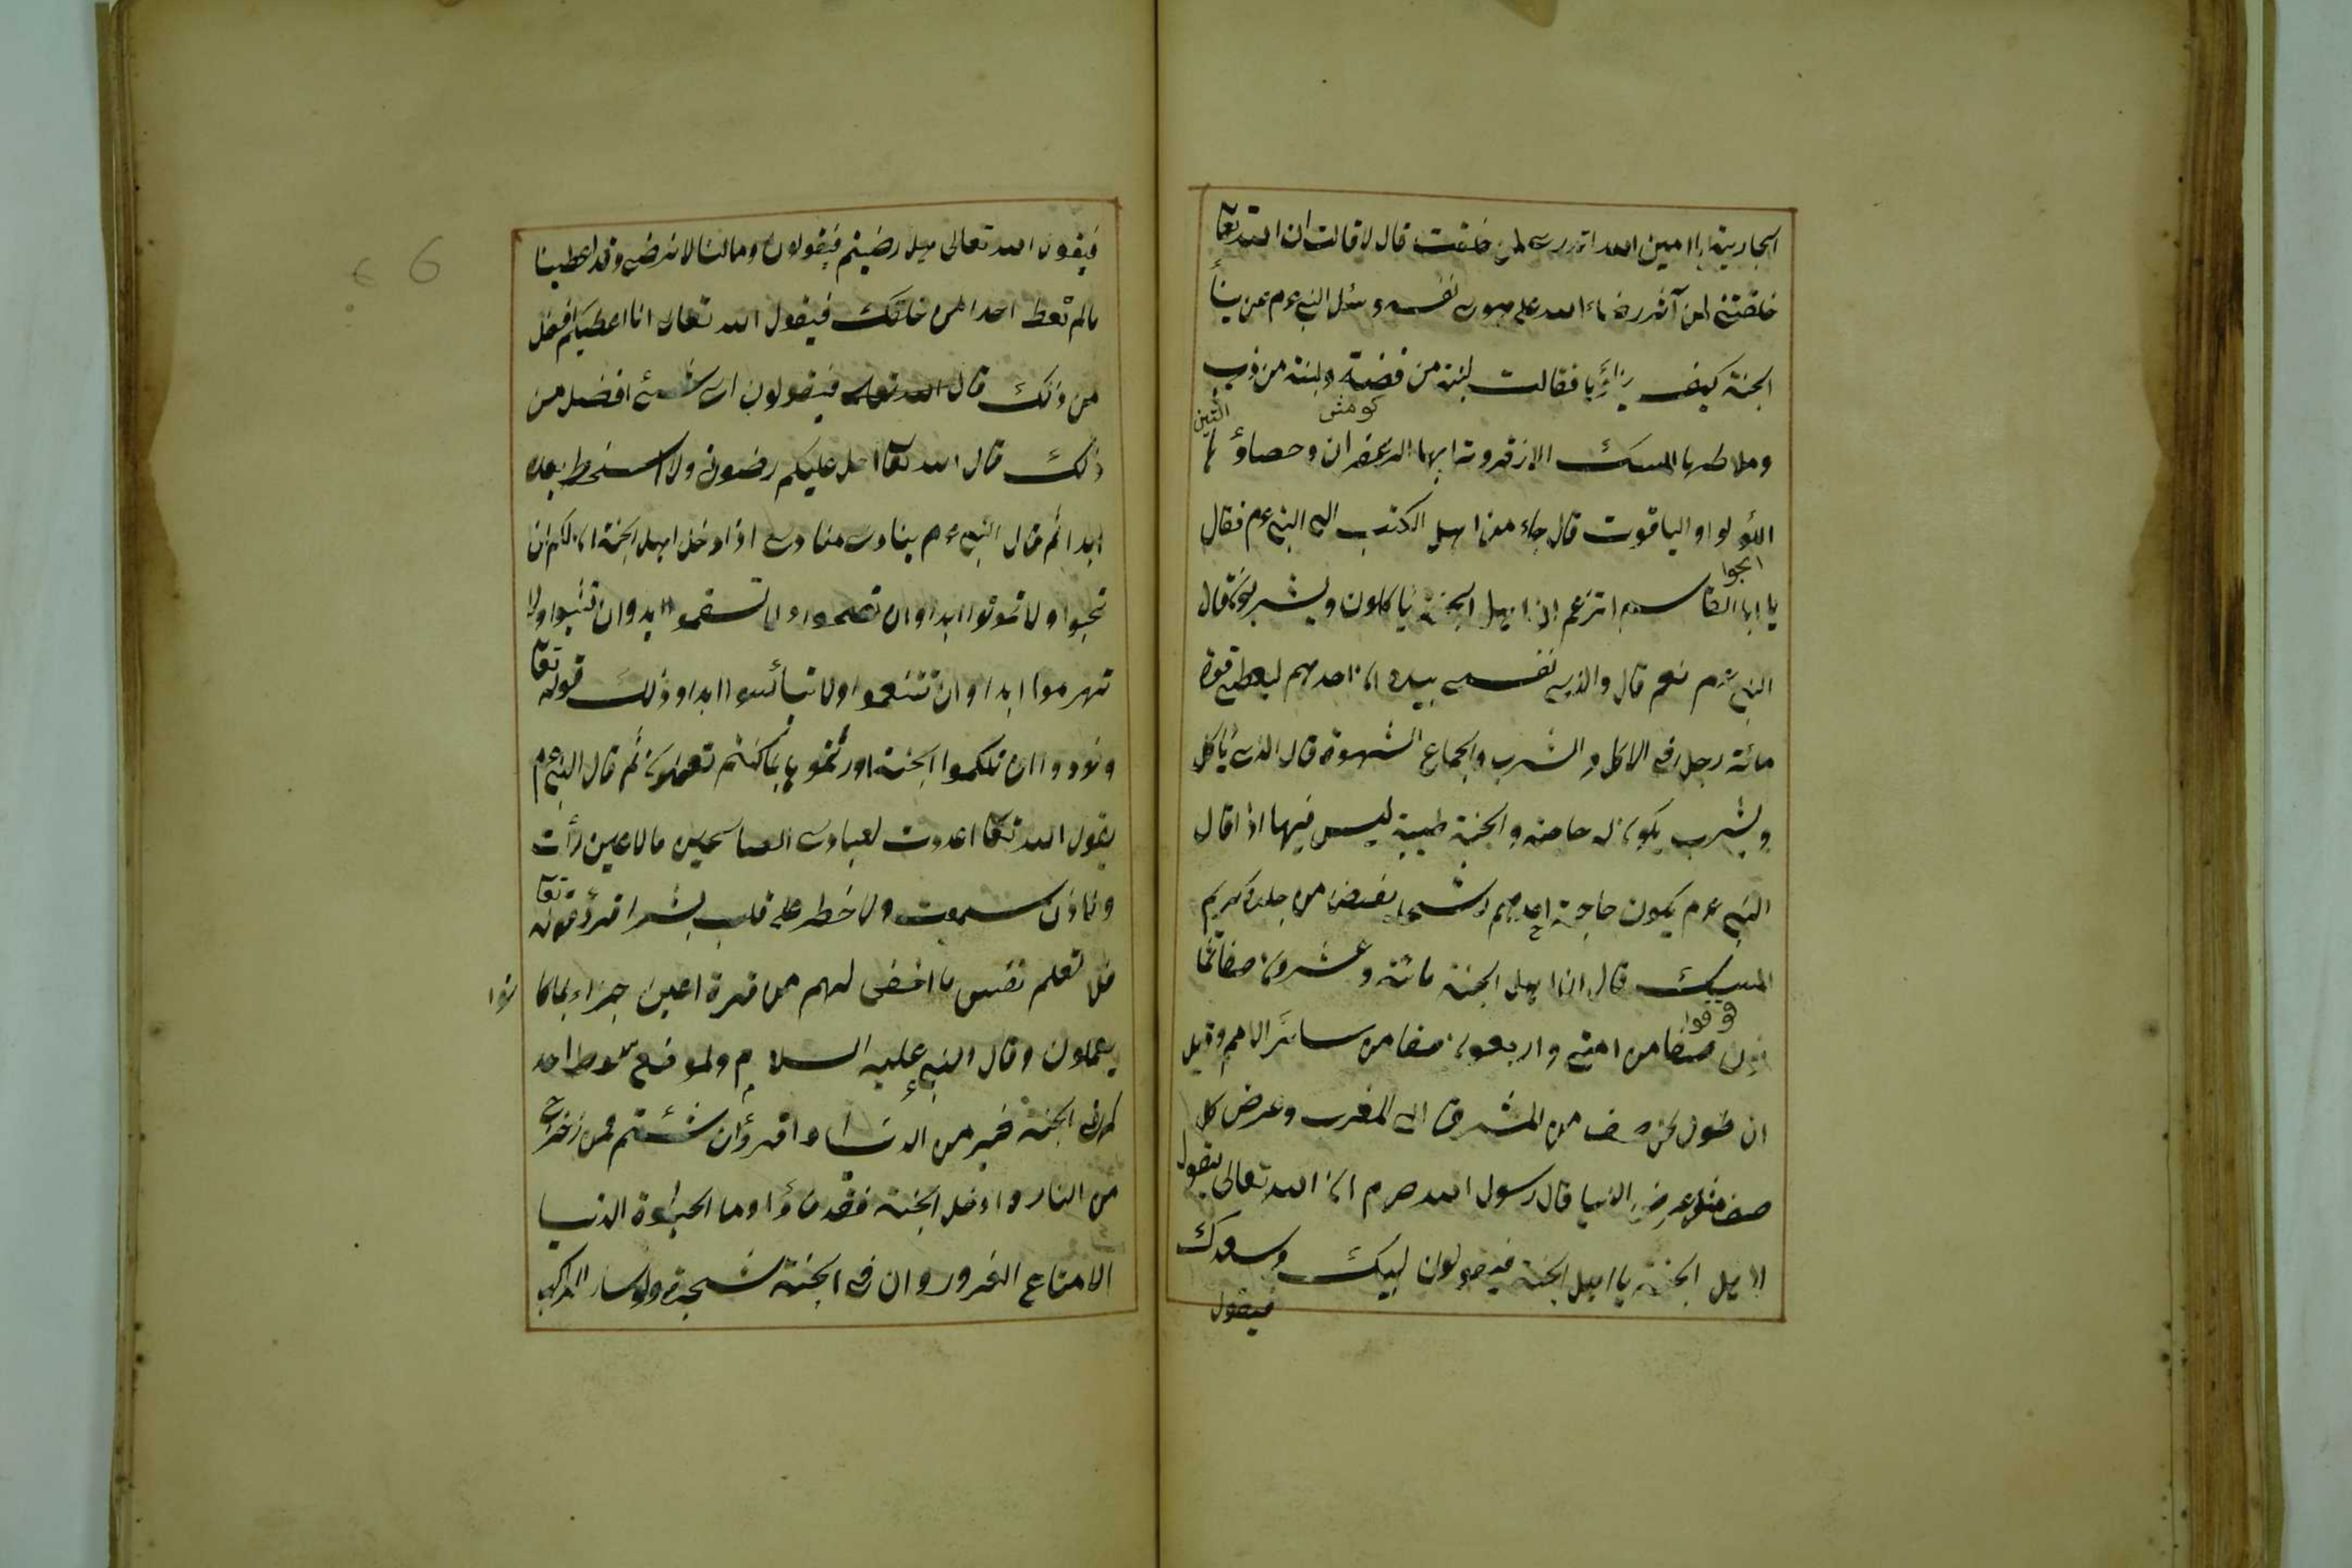 الجارية يا امين الله اتدري لمن خلقت قال لا قالت ان الله تعا
خلقتني لمن آثر رضاء الله على هوى نفسه وسئل النبي عم عن بناء
الجنة كيف بناؤها فقالت لبنة من فضة ولبنة من ذهب
وملاطها المسك الازفر وترابها الزعفران وحصاؤها
اللؤلو او الياقوت قال جاء من اهل الكتب الى النبي عم فقال
يا ابا القاسم اتزعم ان اهل الجنة يأكلون ويشربون قال
النبي عم نعم قال والذي نفسي بيده ان احدهم ليعطى قوة
مائة رجل في الاكل والشرب والجماع الشهوة قال الذي يأكل
ويشرب يكون له حاجة والجنة طيبة ليس فيها اذا قال
النبي عم يكون حاجة احدهم رشحا يفيض من جلده كريم
المسك قال ان اهل الجنة مائة وعشرون صفا ثما
نون صفا من امتي واربعون صفا من سائر الامم وقيل
ان طول كل صف من المشرق الى المغرب وعرض كل
صف مثل عرض الدنيا قال رسول الله صم ان الله تعالى يقول
لاهل الجنة يا اهل الجنة فيقولون لبيك وسعدك
فيقول
فيقول الله تعالى هل رضيتم فيقولون وما لنا لا نرضى وقد اعطينا
مالم تعط احدا من خلقك فيقول الله تعالى انا اعطيكم افضل
من ذلك قال الله تعالى فيقولون اى شئ افضل من
ذلك قال الله تعا احل عليكم رضوانى ولا اسخط بعده
ابدا ثم قال النبي عم ينادى منادى اذا دخل اهل الجنة ان لكم ان
تحيوا ولا تموتوا ابدا وان تصحوا ولا تسقموا ابدا وان تشبوا ولا
تهرموا ابدا وان تنعموا ولا تبأسوا ابدا وذلك قوله تعا
ونودوا ان تلكموا الجنة اورثتموها بما كنتم تعملون ثم قال النبي عم
يقول الله تعا اعددت لعبادى الصالحين ما لا عين رأت
ولا اذن سمعت ولا خطر على قلب بشر اقرؤ قوله تعا
فلا تعلم نفس ما اخفى لهم من قرة اعين جزاء بما كا نوا
يعملون وقال النبي عليه السلام ولموضع سوط احد
كم في الجنة خير من الدنيا واقرؤ ان شئتم فمن زحزح
من النار وادخل الجنة فقد فاز وما الحيوة الدنيا
الا متاع الغرور وان في الجنة شجرة ولو سار الراكب
6